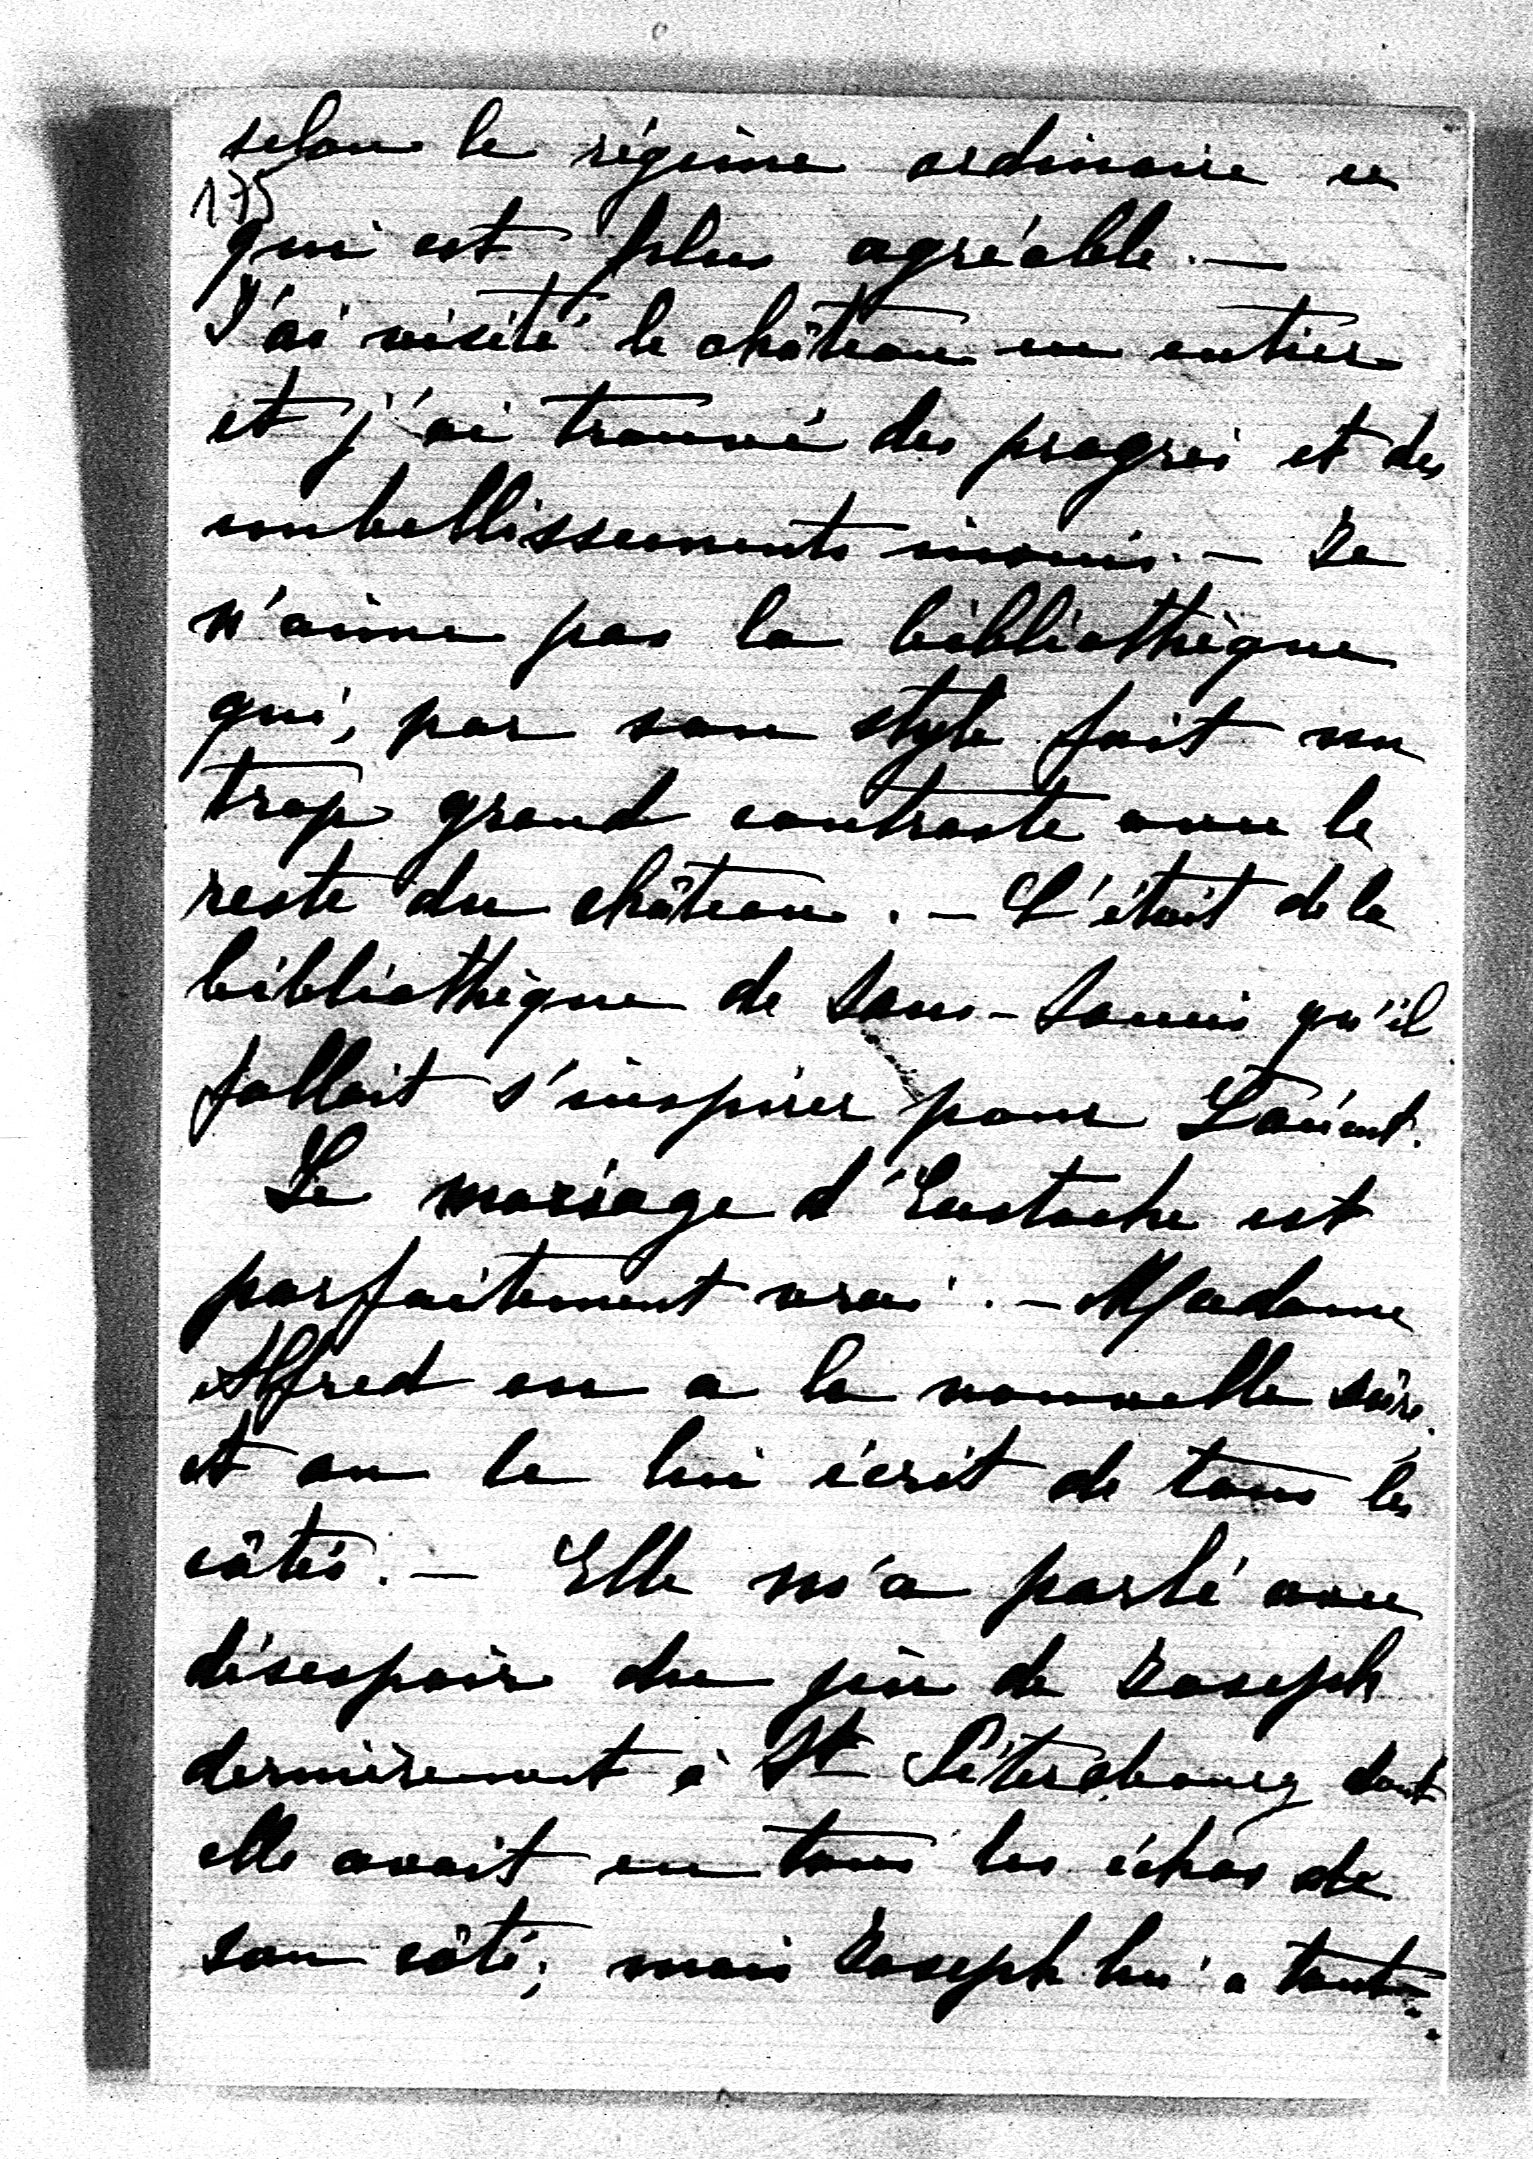 selon le régime ordinaire ce
175
qui est plus agréable. —
J'ai visité le château en entier
et j'ai trouvé des progrès et des
embellissements inouis. — Je
n'aime pas la bibliothèque
qui, par son style fait un
trop grand contraste avec le
reste du château. — C'était de la
bibliothèque de Sans-Soucis qu'il
fallait s'inspirer pour Lancut.
Le mariage d'Eustache est
parfaitement vrai. — Madame
Alfred en a la nouvelle sûre
et on le lui écrit de tous les
côtés. — Elle m'a parlé avec
désespoir du jeu de Joseph
dernièrement à St Pétersbourg dont
elle avait eu tous les échos de
son côté; mais Joseph lui a tout